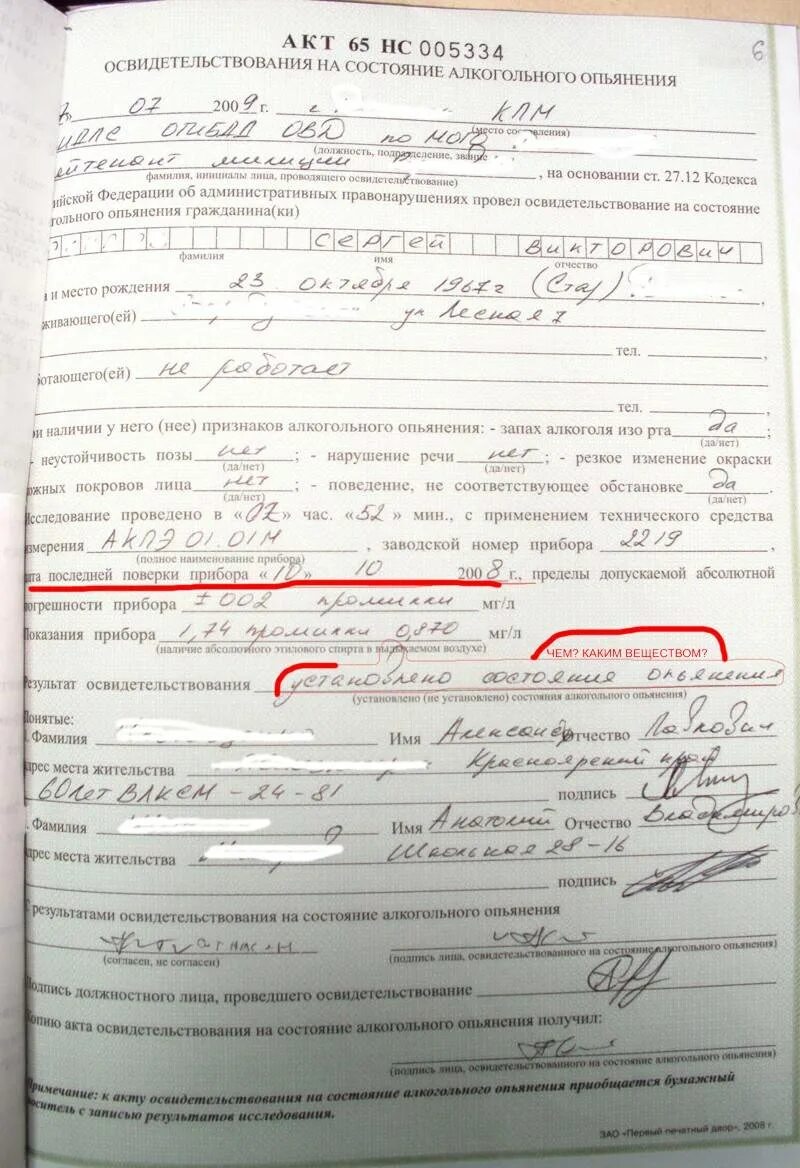 6
АКТ 65 НС 005334
ОСВИДЕТЕЛЬСТВОВАНИЯ НА СОСТОЯНИЕ АЛКОГОЛЬНОГО ОПЬЯНЕНИЯ
07 2009 г. г. КПМ
(место составления)
ИДПС ОГИБДД ОВД по МОТО
(должность, подразделение, звание
ейтенант милиции , на основании ст. 27.12 Кодекса
фамилия, инициалы лица, проводящего освидетельствование)
ийской Федерации об административных правонарушениях провел освидетельствование на состояние
гольного опьянения гражданина(ки)
СЕРГЕЙ ВИКТОРОВИЧ
фамилия имя отчество
а и место рождения 23 октября 1967г (Стар)
живающего(ей) ул Лесная 7
тел. ,
ботающего(ей) не работает
тел. ,
ри наличии у него (нее) признаков алкогольного опьянения: - запах алкоголя изо рта да ;
(да/нет)
- неустойчивость позы нет ; - нарушение речи нет ; - резкое изменение окраски
(да/нет) (да/нет)
ожных покровов лица нет ; - поведение, не соответствующее обстановке да .
(да/нет) (да/нет)
Исследование проведено в «02» час. «52» мин., с применением технического средства
змерения АКПЭ 01.01М , заводской номер прибора 2219 ,
(полное наименование прибора)
ата последней поверки прибора «10» 10 2008 г., пределы допускаемой абсолютной
огрешности прибора ±002 промилли мг/л
Показания прибора 1,74 промилли 0,870 мг/л
(наличие абсолютного этилового спирта в выдыхаемом воздухе)
ЧЕМ? КАКИМ ВЕЩЕСТВОМ?
Результат освидетельствования установлено состояние опьянения
(установлено (не установлено) состояния алкогольного опьянения)
Понятые:
. Фамилия Имя Александр Отчество
дрес места жительства Красноярский край
60 лет ВЛКСМ - 24 - 81 подпись
. Фамилия Имя Анатолий Отчество Владимиров
дрес места жительства Школьная 28-16
подпись
С результатами освидетельствования на состояние алкогольного опьянения
согласен
(согласен, не согласен) (подпись лица, освидетельствованного на состояние алкогольного опьянения)
Подпись должностного лица, проведшего освидетельствование
Копию акта освидетельствования на состояние алкогольного опьянения получил:
(подпись лица, освидетельствованного на состояние алкогольного опьянения)
Примечание: к акту освидетельствования на состояние алкогольного опьянения приобщается бумажный
оситель с записью результатов исследования.
ЗАО «Первый печатный двор», 2008 г.